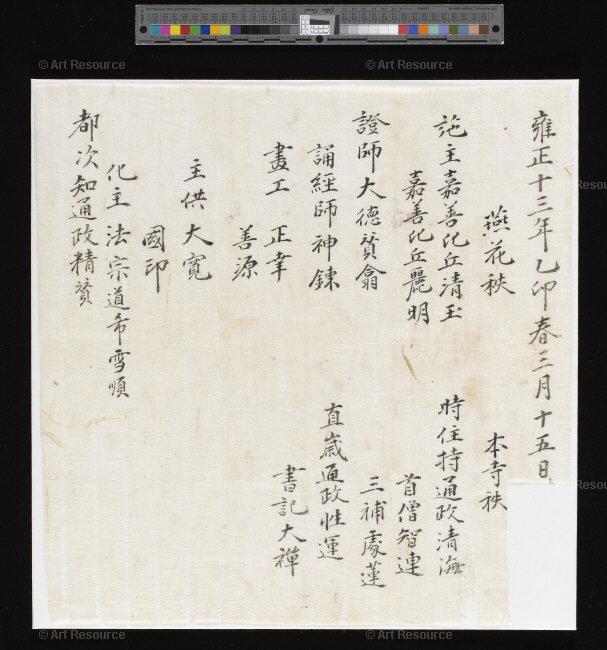 © Art Resource
© Art Resource
雍正十三年乙卯春三月十五日
燕花秩
施主嘉善比丘清玉
嘉善比丘麗明
證師大德贇翕
誦經師神鍊
畫工 正幸
善源
主供大寬
國印
化主法宗道希雪順
都次知通政精贇
本寺秩
時住持通政清海
首僧智連
三補處蓮
直歲通政性運
書記大禪
Resource
Resource
© Art Resource
© Art Resource